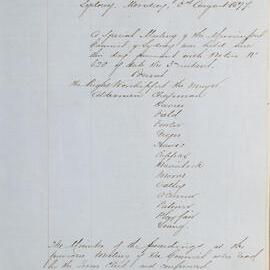 Sydney, Monday, 3rd August 1877
A Special Meeting of the Municipal
Council of Sydney was held here
this day pursuant with Notice No
620 of date the 3 instant.
Present
The Right Worshipful the Mayor
Aldermen Chapman
Davies
Field
Fowler
Hughes
Hawes
Kippax
Macintosh
Merriman
Oatley
O'Connor
Palmer
Playfair
Young
The Minutes of the proceedings at the
previous Meeting of the Council were read
by the Town Clerk and confirmed